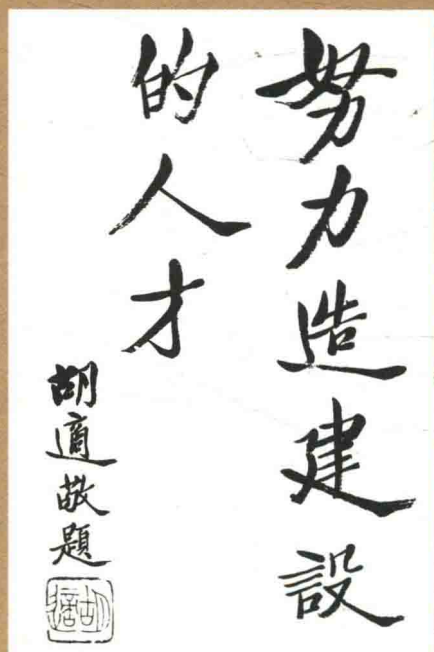 努力造建設
的人才
胡適敬題
胡適